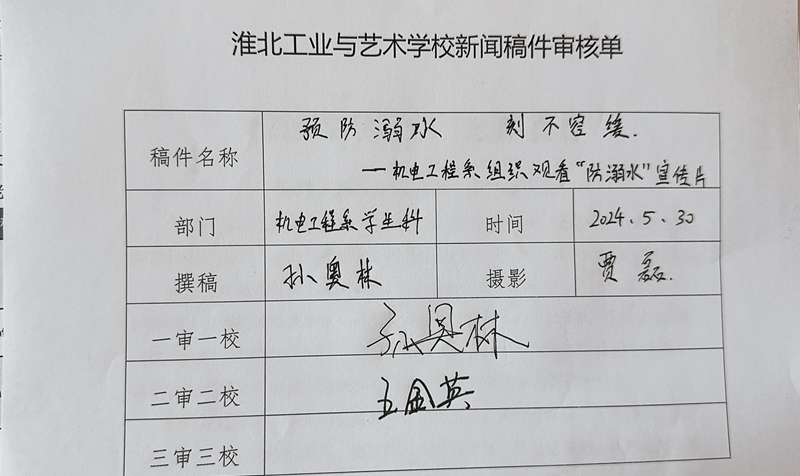 淮北工业与艺术学校新闻稿件审核单
稿件名称
预防溺水 刻不容缓.
——机电工程系组织观看“防溺水”宣传片
部门 机电工程系学生科 时间 2024.5.30
撰稿 孙奥林 摄影 贾磊.
一审一校 孙奥林
二审二校 王金英
三审三校